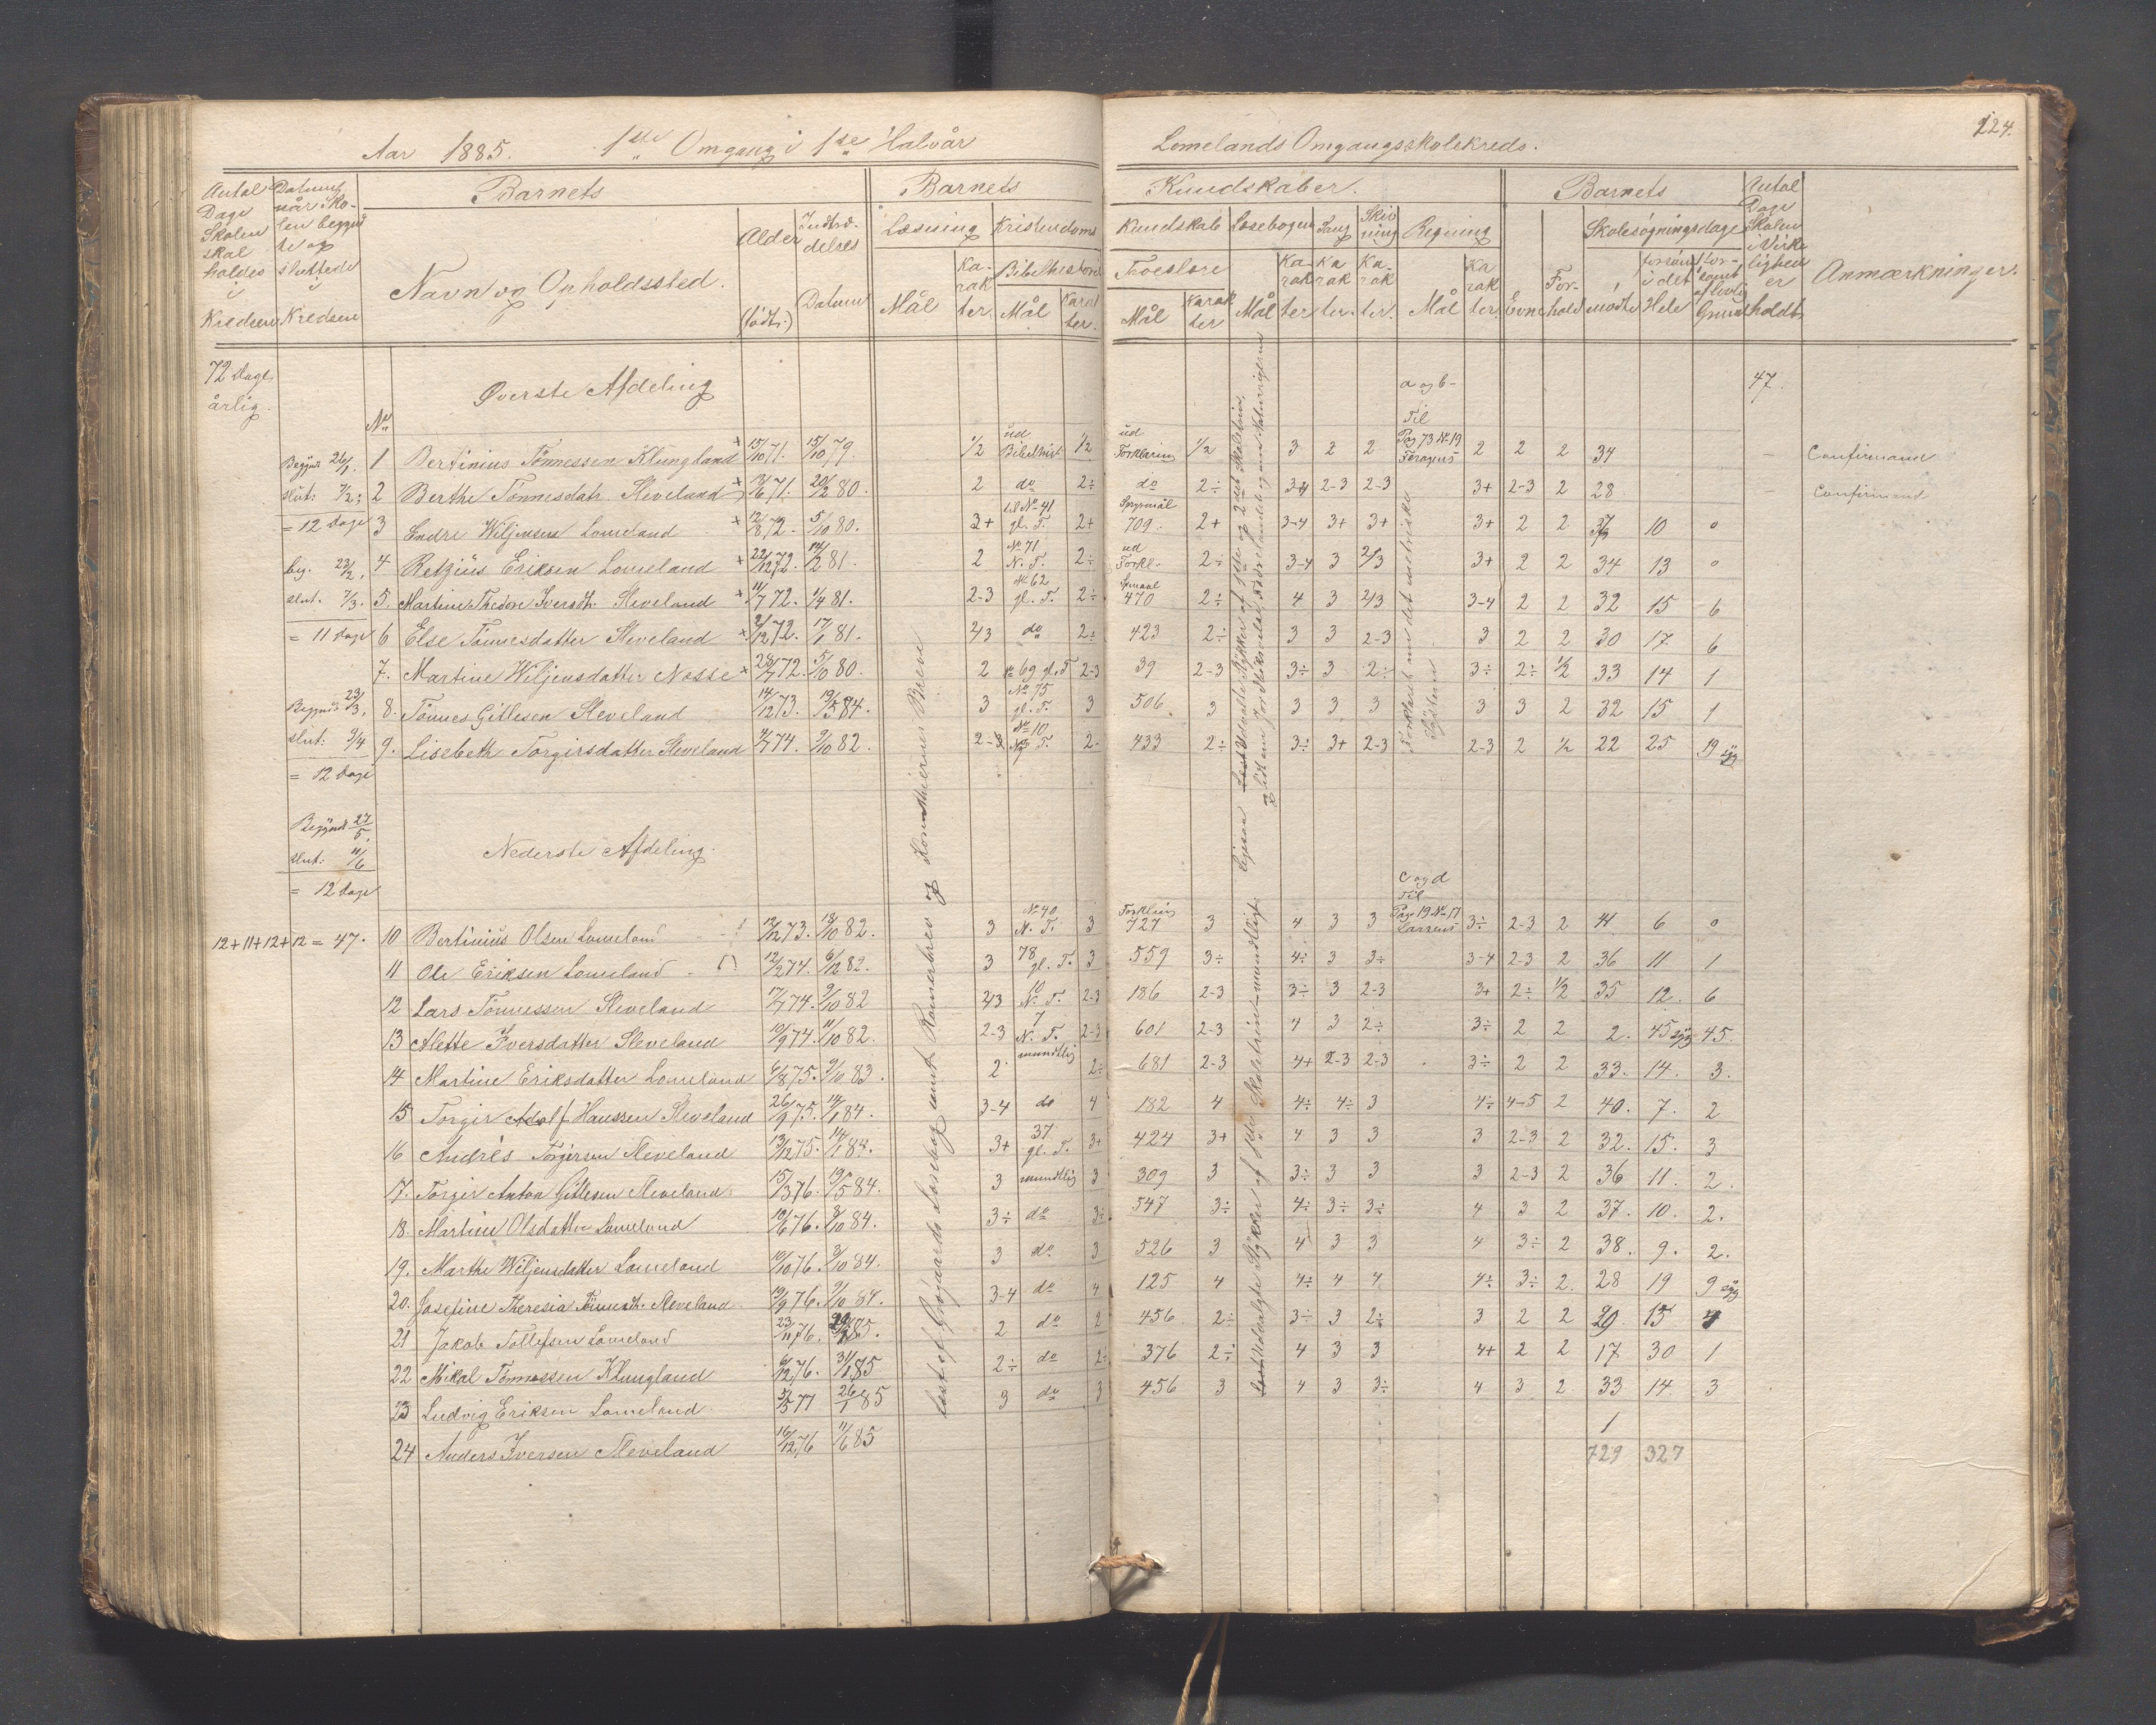 124.
Aar 1885. 1ste Omgang i 1ste Halvår
Lomelands Omgangsskolekreds.
Antal Dage Skolen skal holdes i Kredsen
Datum når Skolen begyndte og sluttede i Kredsen
Barnets
Navn og Opholdssted.
Alder (født:)
Indtrædelses Datum
Barnets Kundskaber.
Læsning Mål Karakter.
Kristendoms Kundskab
Bibelhistorie Mål Karakter.
Troeslære Mål Karakter
Læsebogen Mål Karakter
Sang Karakter.
Skrivning Karakter.
Regning Mål Karakter.
Barnets
Evne
Forhold
Skolesøgningsdage
mødte
forsømt i det Hele
Antal Dage Skolen i Virkelighed er holdt.
Anmærkninger.
72 Dage årlig.
Øverste Afdeling
a og b-
47.
No
Begynt 26/1.
slut: 7/2;
= 12 dage
beg. 23/2,
slut. 7/3.
= 11 dage
Begynt 23/3,
slut. 3/4
= 12 dage
Begynt 27/5.
slut: 11/6
= 12 dage
12+11+12+12 = 47.
1 Bertinius Tönnessen Klungland + 15/10 71. 15/10 79. 1/2 ud Bibelhist. 1/2 ud Forklaring 1/2 3 2 2 Til Pag 73 No 19 2 2 2 34 - Confirmand
2 Berthe Tönnesdatr. Sleveland + 71. 20/2 80. 2 do 2÷ do 2÷ 3-4 2-3 2-3 3+ 2-3 2 28 - Confirmand
3 Endre Wiljensen Lomeland + 12/8 72. 5/10 80. 3+ til No 41 gl. T. 2+ Spørsmål 709. 2+ 3-4 3+ 3+ 3+ 2 2 37 10 0
4 Retzius Eriksen Lomeland + 22/12 72. 14/2 81. 2 No 71 N. T. 2÷ ud Forkl. 2÷ 3-4 3 2/3 3+ 2 2 34 13 0
5. Martine Thedore Iversdt. Sleveland + 11/7 72. 1/4 81. 2-3 No 62 gl. T. 2÷ 470 2÷ 4 3 2/3 3-4 2 2 32 15 6
6 Else Tönnesdatter Sleveland + 21/12 72. 17/1 81. 2/3 do 2÷ 423 2÷ 3 3 2-3 3 2 2 30 17. 6
7. Martine Wiljensdatter Nosse + 72. 5/10 80. 2 No 69 gl. T 2-3 39 2-3 3÷ 3 2÷ 3÷ 2÷ 1/2 33 14 1
8. Tönnes Gitlesen Sleveland 14/12 73. 19/5 84. 3 No 75 gl. T. 3 506 3 3 3 3 3 3 2 32 15 1
9. Lisebeth Torgirsdatter Sleveland 4/7 74. 9/10 82. 2-3 No 10 T. 2- 433 2÷ 3÷ 3+ 2-3 2-3 2 1/2 22 25 19 syg
Forklaret om det metriske System
Nederste Afdeling.
c og d
10 Bertinius Olsen Lomeland 12/12 73. 18/10 82. 3 No 40 N. T. 3 Forklaring 727 3 4 3 3 Til Pag 19 No 17 Larsens 3÷ 2-3 2 41 6 0
11 Ole Eriksen Lomeland 12/2 74. 6/12 82. 3 78 gl. T. 3 559 3÷ 4÷ 3 3÷ 3-4 2-3 2 36 11 1
12 Lars Tönnessen Sleveland 17/7 74. 9/10 82 2/3 10 N. T. 2-3 186 2-3 3÷ 3 2-3 3+ 2÷ 1/2 35 12. 6
13 Alette Iversdatter Sleveland 10/9 74. 11/10 82. 2-3 7 N. T. 2-3 601 2-3 4 3 2÷ 3÷ 2 2 2. 45 syg 45.
14 Martine Eriksdatter Lomeland 6/8 75. 9/10 83. 2 mundtlig 2÷ 681 2-3 4+ 2-3 2-3 3÷ 2 2 33. 14. 3.
15 Torgir Adolf Hanssen Sleveland 26/9 75. 14/1 84. 3-4 do 4 182 4 4÷ 4÷ 3 4÷ 4-5 2 40. 7. 2
16 Andrés Torgirsen Sleveland 13/12 75. 14/1 84. 3+ 37 gl. T. 3+ 424 3+ 4 3 3 3 2-3 2 32. 15. 3
17. Torgir Anton Gitlesen Sleveland 15/3 76. 19/5 84. 3 mundtlig 3 309 3 3÷ 3 3 3 2-3 2 36 11. 2.
18. Martine Olsdatter Lomeland 10/6 76. 3/10 84. 3÷ do 3÷ 547 3÷ 4÷ 3÷ 3÷ 4 3 2 37. 10. 2.
19. Marthe Wiljensdatter Lomeland 10/10 76. 3/10 84. 3 do 3 526 3 4 3 3 4 3÷ 2 38. 9. 2.
20. Josefine Theresia Tönnesdt. Sleveland 19/9 76. 9/10 84. 3-4 do 4 125 4 4÷ 4 4 4÷ 3÷ 2. 28 19 9 syg
21 Jakob Tollefsen Lomeland 23/11 76. 85. 2 do 2 456 2÷ 3÷ 3 2÷ 3 2 2 29 15 4
22 Mikal Tönnessen Klungland 6/12 76. 31/1 85 2÷ do 2÷ 376 2÷ 4 3 3 4+ 2 2 17. 30 1
23 Ludvig Eriksen Lomeland. 5/5 77 26/1 85 3 do 3 456 3 4 3 3÷ 4 3 2 33 14 3
24 Anders Iversen Sleveland 16/12 76 11/6 85 1
729 327